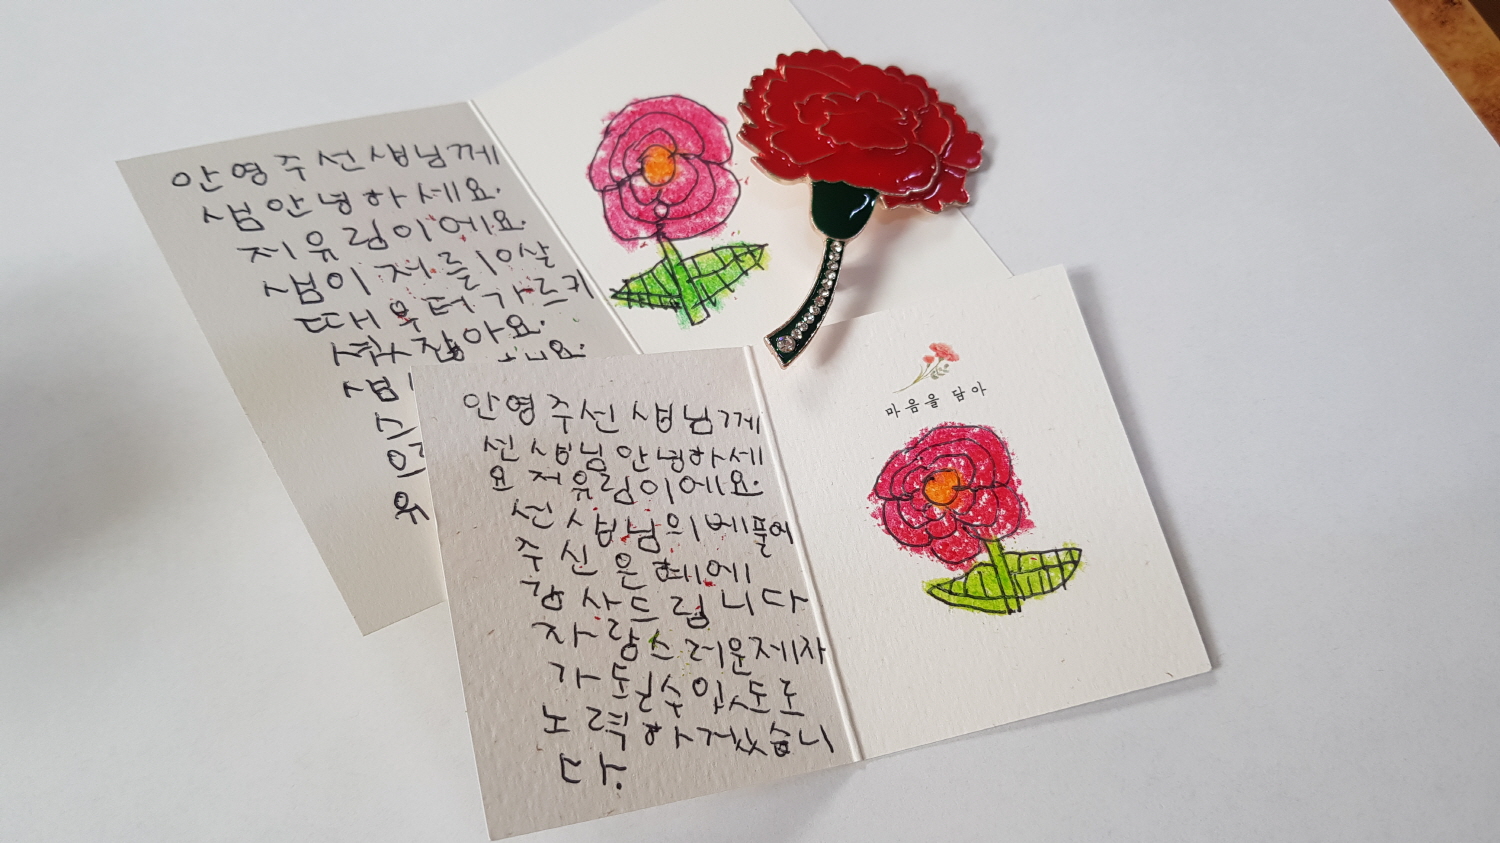 안영주선생님께
샘안녕하세요.
저유림이에요.
샘이저를10살
때부터가르키
셨잖아요.
샘
유
안영주선생님께
선생님안녕하세
요저유림이에요.
선생님의베풀어
주신은혜에
감사드립니다
자랑스러운제자
가될수있도록
노력하겠습니
다.
마음을 담아